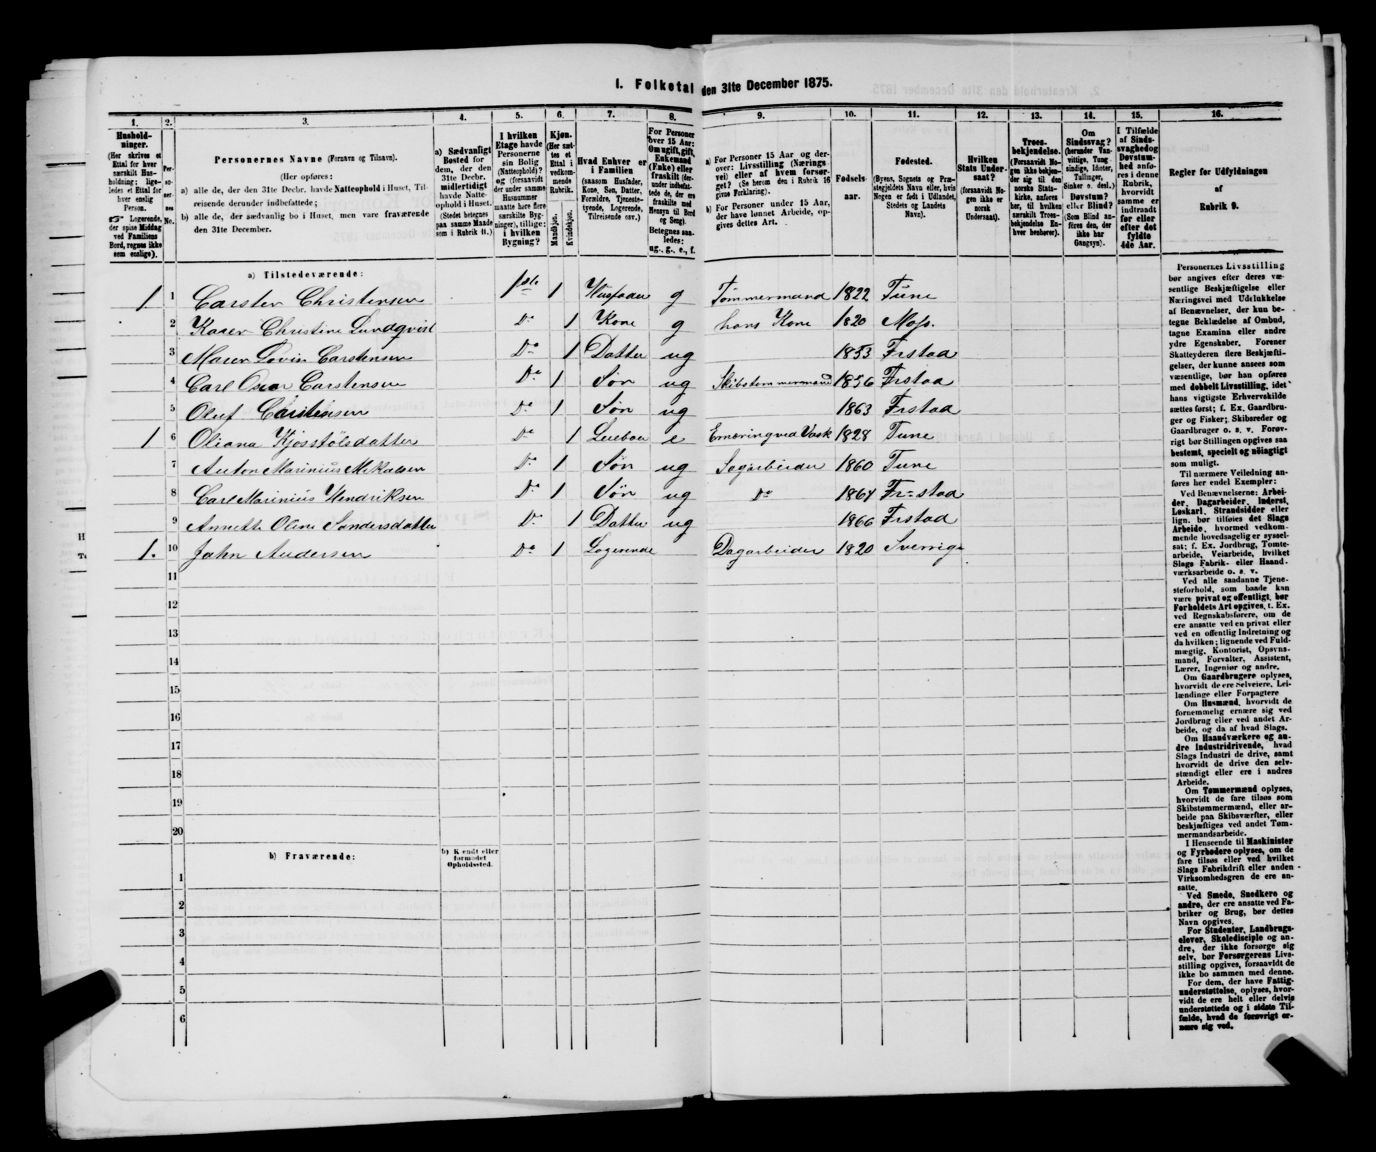 I. Folketal den 31te December 1875.
1. 2. 3. 4. 5. 6. 7. 8. 9. 10. 11. 12. 13. 14. 15. 16.
Husholdninger. (Her skrives et Ettal for hver særskilt Husholdning; ligeledes et Ettal for hver enslig Person. Logerende, der spise Middag ved Familiens Bord, regnes ikke som enslige).
Personernes No.
Personernes Navne (Fornavn og Tilnavn).
(Her opføres:
a) alle de, der den 31te Decbr. havde Natteophold i Huset, Tilreisende derunder indbefattede;
b) alle de, der sædvanlig bo i Huset, men vare fraværende den 31te December.
a) Sædvanligt Bosted for dem, der den 31te Decbr. midlertidigt havde Natteophold i Huset. (Stedet betegnes paa samme Maade som i Rubrik 11.)
I hvilken Etage havde Personerne sin Bolig (Natteophold)? og (forsaavidt der under samme Husnummer maatte høre flere særskilte Bygninger), tillige: i hvilken Bygning?
Kjøn. (Her sættes et Ettal i vedkommende Rubrik. Mandkjøn. Kvindekjøn.
Hvad Enhver er i Familien (saasom Husfader, Kone, Søn, Datter, Forældre, Tjenestetyende, Logerende, Tilreisende osv.)
For Personer over 15 Aar: Om ugift, gift, Enkemand (Enke) eller fraskilt (derunder indbefattede de, der ere fraskilte med Hensyn til Bord og Seng). Betegnes saaledes: ug., g., e., f.
a) For Personer 15 Aar og derover: Livsstilling (Næringsvei) eller af hvem forsørget? (Se herom den i Rubrik 16 givne Forklaring).
b) For Personer under 15 Aar, der have lønnet Arbeide, opgives dettes Art.
Fødselsaar.
Fødested. (Byens, Sognets og Præstegjeldets Navn eller, hvis Nogen er født i Udlandet, Stedets og Landets Navn).
Hvilken Stats Undersaat? (forsaavidt Nogen ikke er norsk Undersaat).
Troesbekjendelse. (Forsaavidt Nogen ikke bekjender sig til den norske Statskirke, anføres her, til hvilken særskilt Troesbekjendelse Enhver henhører).
Om Sindssvag? (herunder Vanvittige, Tungsindige, Idioter, Tullinger, Sinker o. desl.) Døvstum? eller Blind? (Som Blind anføres den, der ikke har Gangsyn).
I Tilfælde af Sindssvaghed og Døvstumhed anføres i denne Rubrik, hvorvidt samme er indtraadt før eller efter det fyldte 4de Aar.
Regler for Udfyldningen af Rubrik 9.
a) Tilstedeværende:
1 1 Carsten Christensen 1ste 1 Husfader g Tømmermand 1822 Tune
2 Karen Christine Lundqvist Do 1 Kone g hans Kone 1820 Moss.
3 Maren Lovise Carstensen Do 1 Datter ug 1853 Frstad
4 Carl Oscar Carstensen Do 1 Søn ug Skibstømmermand 1856 Frstad
5 Oluf Carstensen Do 1 Søn ug 1863 Frstad
1 6 Oliana Kjosstølsdatter Do 1 Leiebou e Ernæring ved Vask 1828 Tune
7 Anton Marinius Mikalsen Do 1 Søn ug Sagarbeider 1860 Tune
8 Carl Marinius Hendriksen Do 1 Søn ug Do 1864 Frstad
9 Annette Oline Sandersdatter Do 1 Datter ug 1866 Frstad
1. 10 John Andersen Do 1 Logerende Dagarbeider 1820 Sverrige
11
12
13
14
15
16
17
18
19
20
b) Fraværende:
b) Kjendt eller formodet Opholdssted.
1
2
3
4
5
6
Personernes Livsstilling
bør angives efter deres væ-
sentlige Beskjæftigelse eller
Næringsvei med Udelukkelse
af Benævnelser, der kun be-
tegne Beklædelse af Ombud,
tagne Examina eller andre
ydre Egenskaber. Forener
Skatteyderen flere Beskjæfti-
gelser, der kunne ansees som
væsentlige, bør han opføres
med dobbelt Livsstilling, idet
hans vigtigste Erhvervskilde
sættes først; f. Ex. Gaardbru-
ger og Fisker; Skibsreder og
Gaardbruger o. s. v. Forøv-
rigt bør Stillingen opgives saa
bestemt, specielt og nøiagtigt
som muligt.
Til nærmere Veiledning an-
føres her endel Exempler:
Ved Benævnelserne: Arbei-
der, Dagarbeider, Inderst,
Løskarl, Strandsidder eller
lign. bør tilføies det Slags
Arbeide, hvormed vedkom-
mende hovedsagelig er syssel-
sat; f. Ex. Jordbrug, Tomte-
arbeide, Veiarbeide, hvilket
Slags Fabrik- eller Haand-
værksarbeide o. s. v.
Ved alle saadanne Tjene-
steforhold, som baade kan
være privat og offentligt, bør
Forholdets Art opgives, t. Ex.
ved Regnskabsførere, om de
ere ansatte ved en privat eller
ved en offentlig Indretning og
da hvilken; lignende ved Fuld-
mægtig, Kontorist, Opsyns-
mand, Forvalter, Assistent,
Lærer, Ingeniør og andre.
Om Gaardbrugere oplyses,
hvorvidt de ere Selveiere, Lei-
lændinge eller Forpagtere
Om Husmænd, hvorvidt de
fornemmelig ernære sig ved
Jordbrug eller ved andet Ar-
beide, og da af hvad Slags.
Om Haandværkere og an-
dre Industridrivende, hvad
Slags Industri de drive, samt
hvorvidt de drive den selv-
stændigt eller ere i andres
Arbeide.
Om Tømmermænd oplyses,
hvorvidt de fare tilsøs som
Skibstømmermænd, eller ar-
beide paa Skibsværfter, eller
beskjæftiges ved andet Tøm-
mermandsarbeide.
I Henseende til Maskinister
og Fyrbødere oplyses, om de
fare tilsøs eller ved hvilket
Slags Fabrikdrift eller anden
Virksomhedsgren de ere an-
satte.
Ved Smede, Snedkere og
andre, der ere ansatte ved Fa-
briker og Brug, bør dettes
Navn opgives.
For Studenter, Landbrugs-
elever, Skoledisciple og an-
dre, der ikke forsørge sig
selv, bør Forsørgerens Livs-
stilling opgives, forsaavidt de
ikke bo sammen med denne.
For dem, der have Fattig-
understøttelse, oplyses, hvor-
vidt de ere helt eller delvis
understøttede og i sidste Til-
fælde, hvad de forøvrigt er-
nære sig ved.